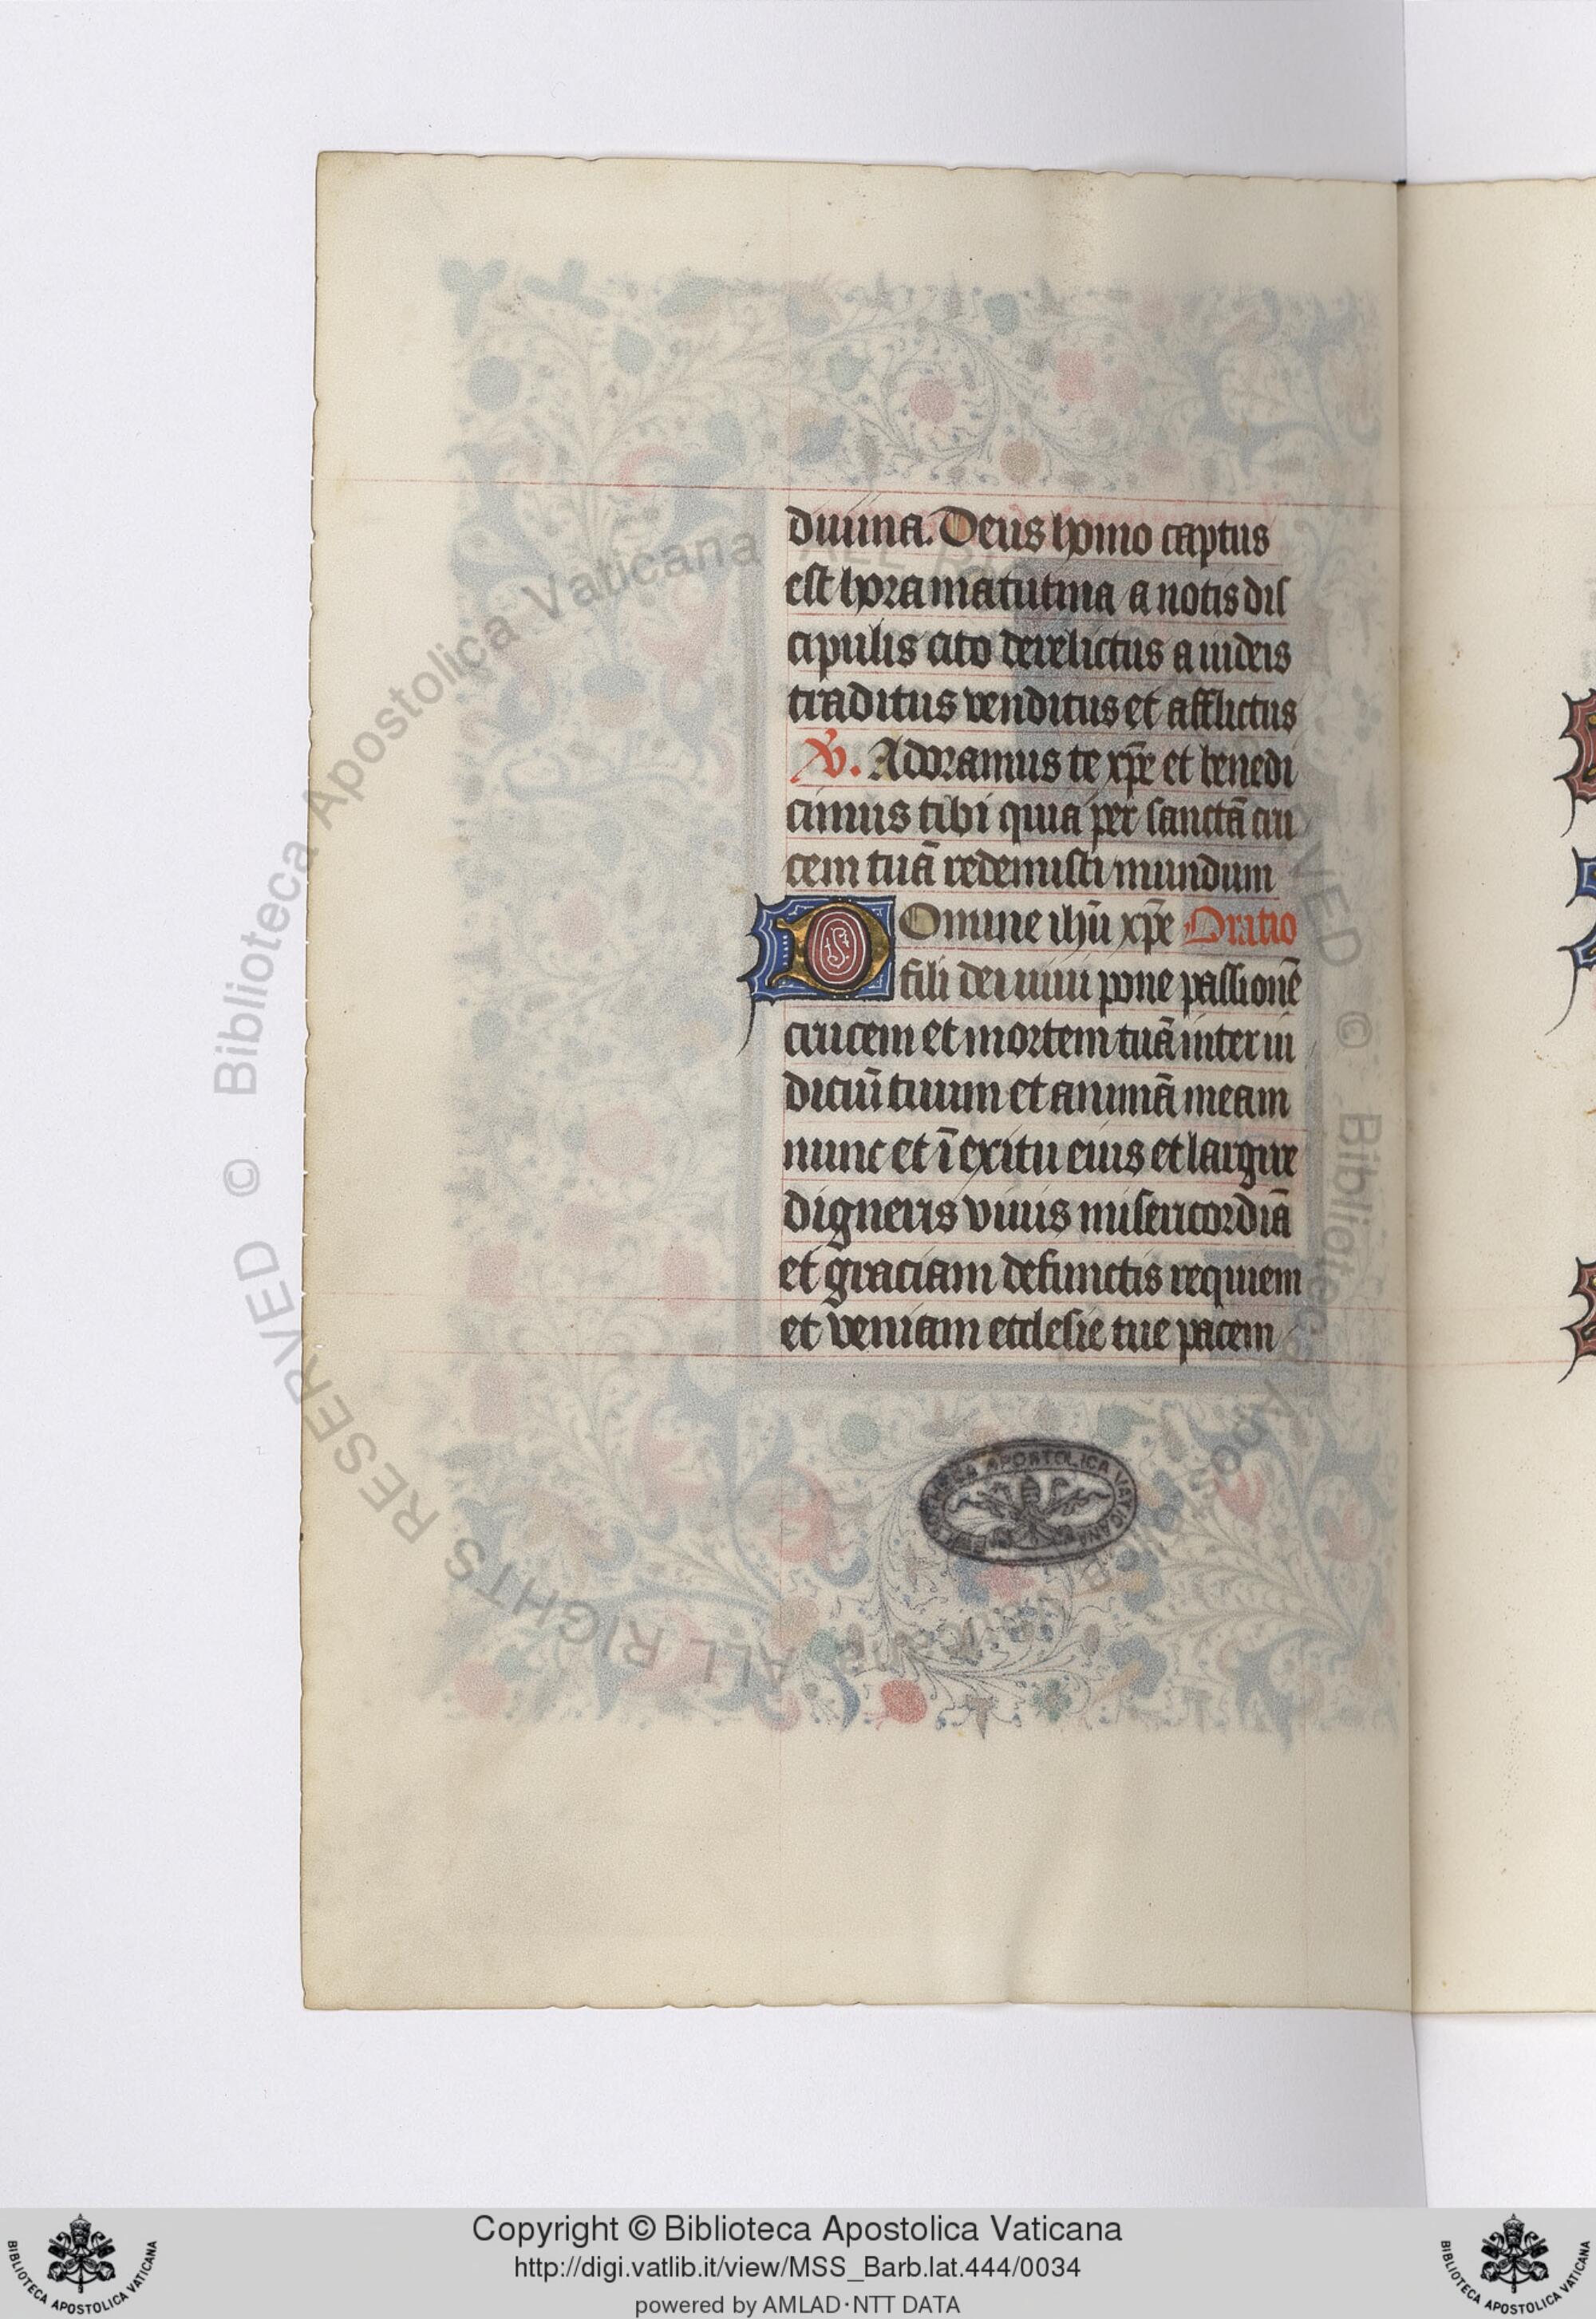 diuina. Deus homo captus
est hora matutina a notis dis
cipulis cito derelictus a iudeis
traditus venditus et afflictus
V. Adoramus te xp̄e et benedi
cimus tibi quia per sanctā cru
cem tuā redemisti mundum
Domine ihū xp̄e Oratio
fili dei uiui pone passionē
crucem et mortem tuā inter iu
diciū tuum et animā meam
nunc et ī exitu eius et largire
digneris viuis misericordiā
et graciam defunctis requiem
et veniam ecclesie tue pacem
BIBLIOTHECA APOSTOLICA VATICANA
© Biblioteca Apostolica Vaticana ALL RIGHTS RESERVED © Biblioteca Apostolica Vaticana ALL RIGHTS RESERVED
Copyright © Biblioteca Apostolica Vaticana
http://digi.vatlib.it/view/MSS_Barb.lat.444/0034
powered by AMLAD·NTT DATA
BIBLIOTECA APOSTOLICA VATICANA
BIBLIOTECA APOSTOLICA VATICANA